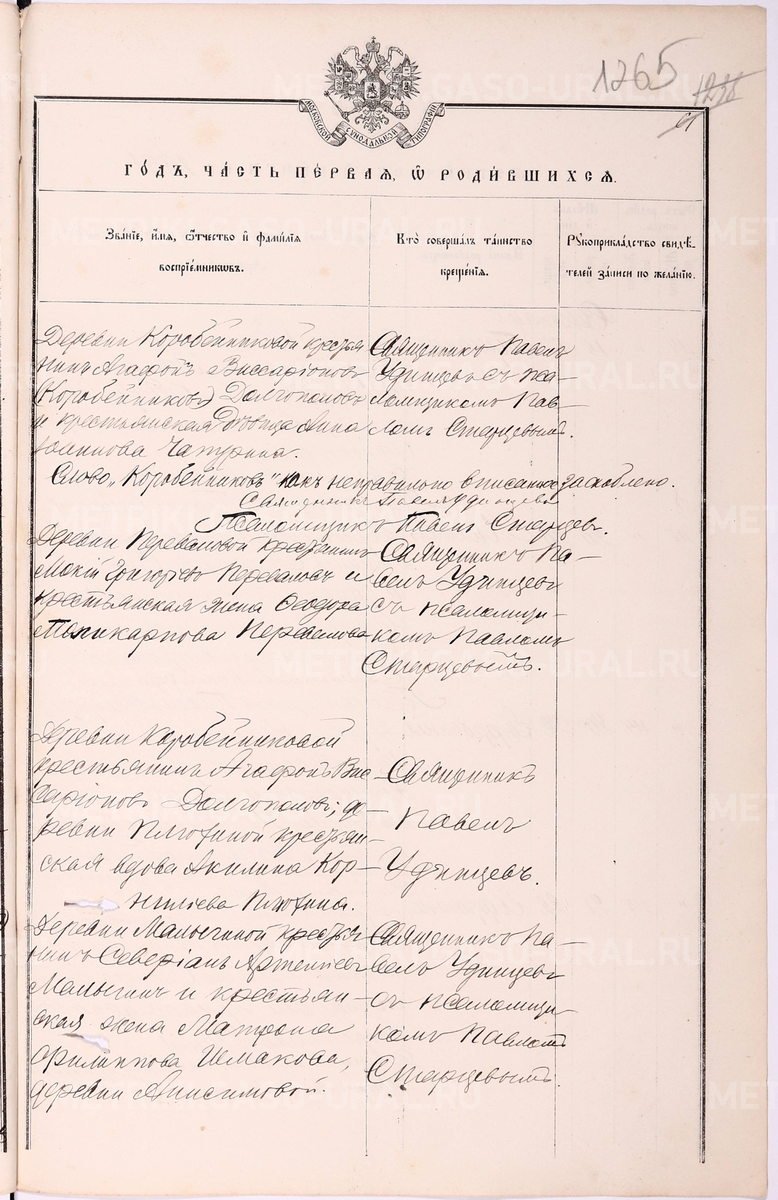 1265
МОСКОВСКОЙ СѴНОДАЛЬНОЙ ТИПОГРАФІИ
ГО́ДЪ, ЧА́СТЬ ПЕ́РВАЯ, Ѿ РОДИ́ВШИХСЯ.
Зва́ніе, и́мя, ѻ҆́тчество и҆ фами́лія
воспріе́мникѡвъ.
Кто̀ соверша́лъ та́инство
креще́нія.
Рꙋкоприкла́дство свидѣ́-
телей за́писи по жела́нію.
Деревни Коробейниковой крестья
нинъ Агафонъ Виссаріоновъ
(Коробейниковъ) Долгополовъ
и крестьянская дѣвица Анна
Іоаннова
Священникъ Павелъ
Удинцевъ съ пса-
ломщикомъ Пав-
ломъ Старцевымъ.
Слово „Коробейниковъ" какъ неправильно вписанное заскоблено.
Священникъ Павелъ Удинцевъ
Псаломщикъ Павелъ Старцев.
Деревни Переваловой крестьянинъ
Мокій Григорьевъ Переваловъ и
крестьянская жена Ѳеодора
Поликарпова Перевалова
Священникъ Па-
велъ Удинцевъ
съ псаломщи-
комъ Павломъ
Старцевымъ.
Деревни Коробейниковой
крестьянинъ Агафонъ Вис-
саріоновъ Долгополовъ; де-
ревни Плотиной крестьян-
ская вдова Акилина Кор-
нилиева Плотина.
Священникъ
Павелъ
Удинцевъ.
Деревни Малыгиной крестья
нинъ Северіанъ Артемьевъ
Малыгинъ и крестьян-
ская жена Матрона
Филиппова Исмакова,
деревни Анисимовой.
Священникъ Па-
велъ Удинцевъ
съ псаломщи-
комъ Павломъ
Старцевымъ.